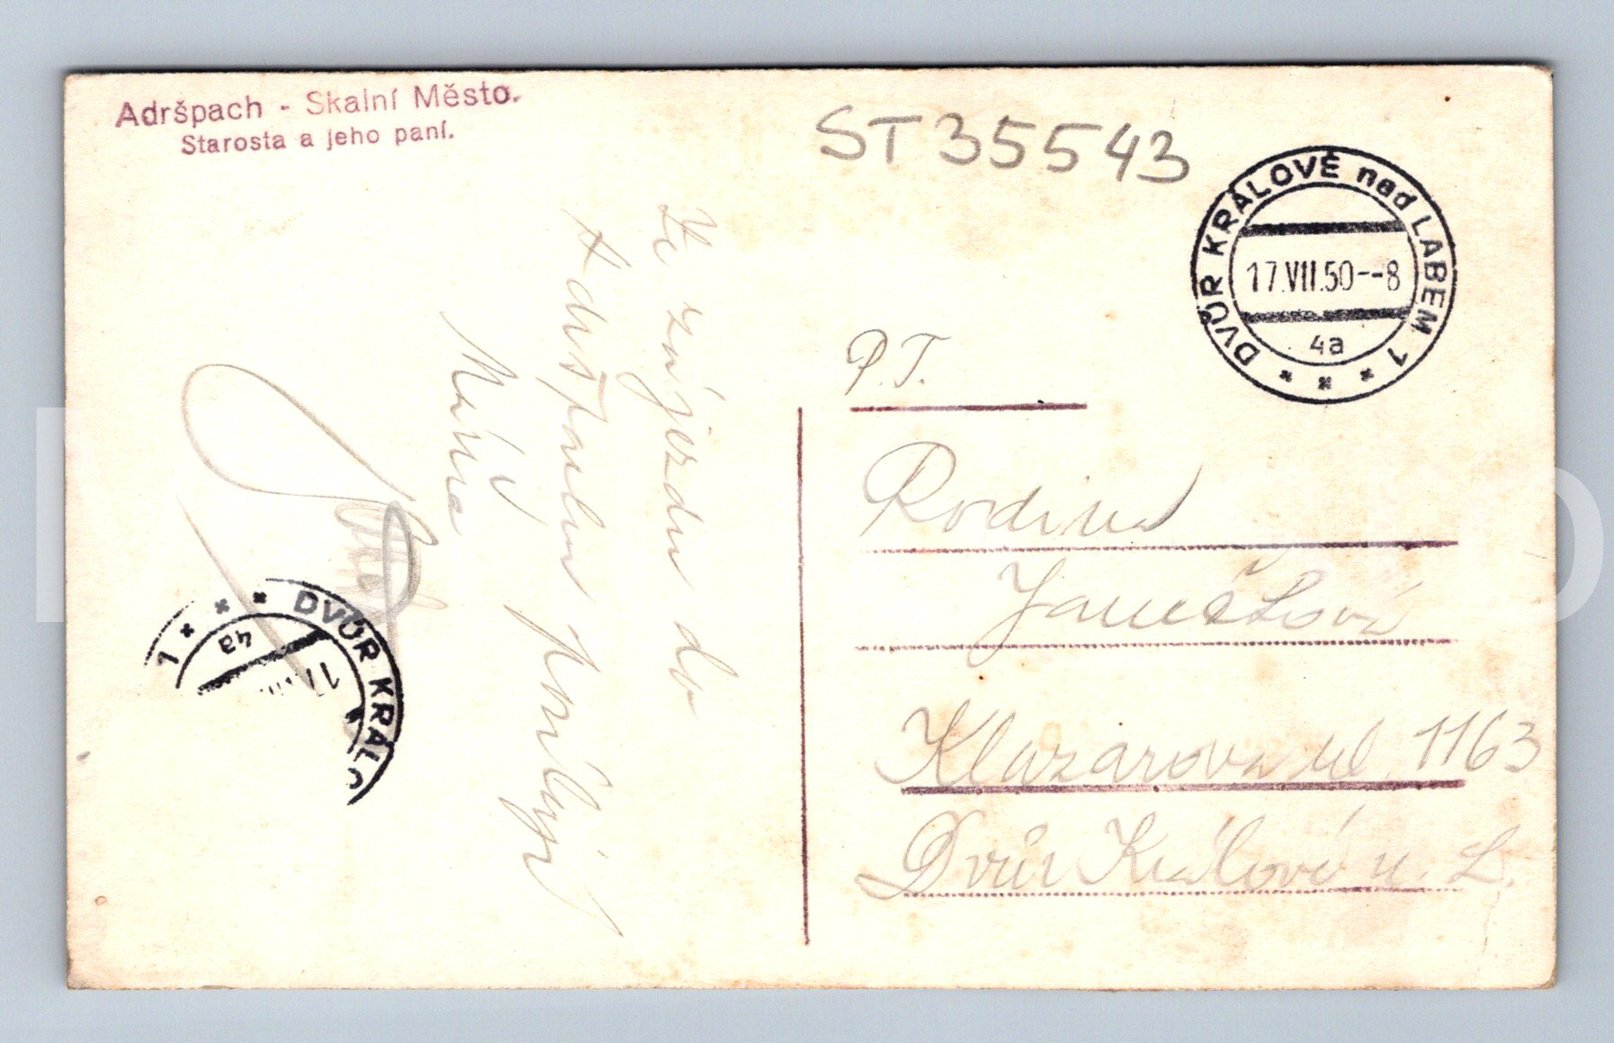 Adršpach - Skalní Město.
Starosta a jeho paní.
ST35543
DVŮR KRÁLOVÉ nad LABEM 1
17.VII.50--8
4a
Ze zájezdu do
Adršpachu
P.T.
Rodina
Janečkova
Klazarova ul 1163
Dvůr Králové n. L.
1 DVŮR KRÁLO
4a